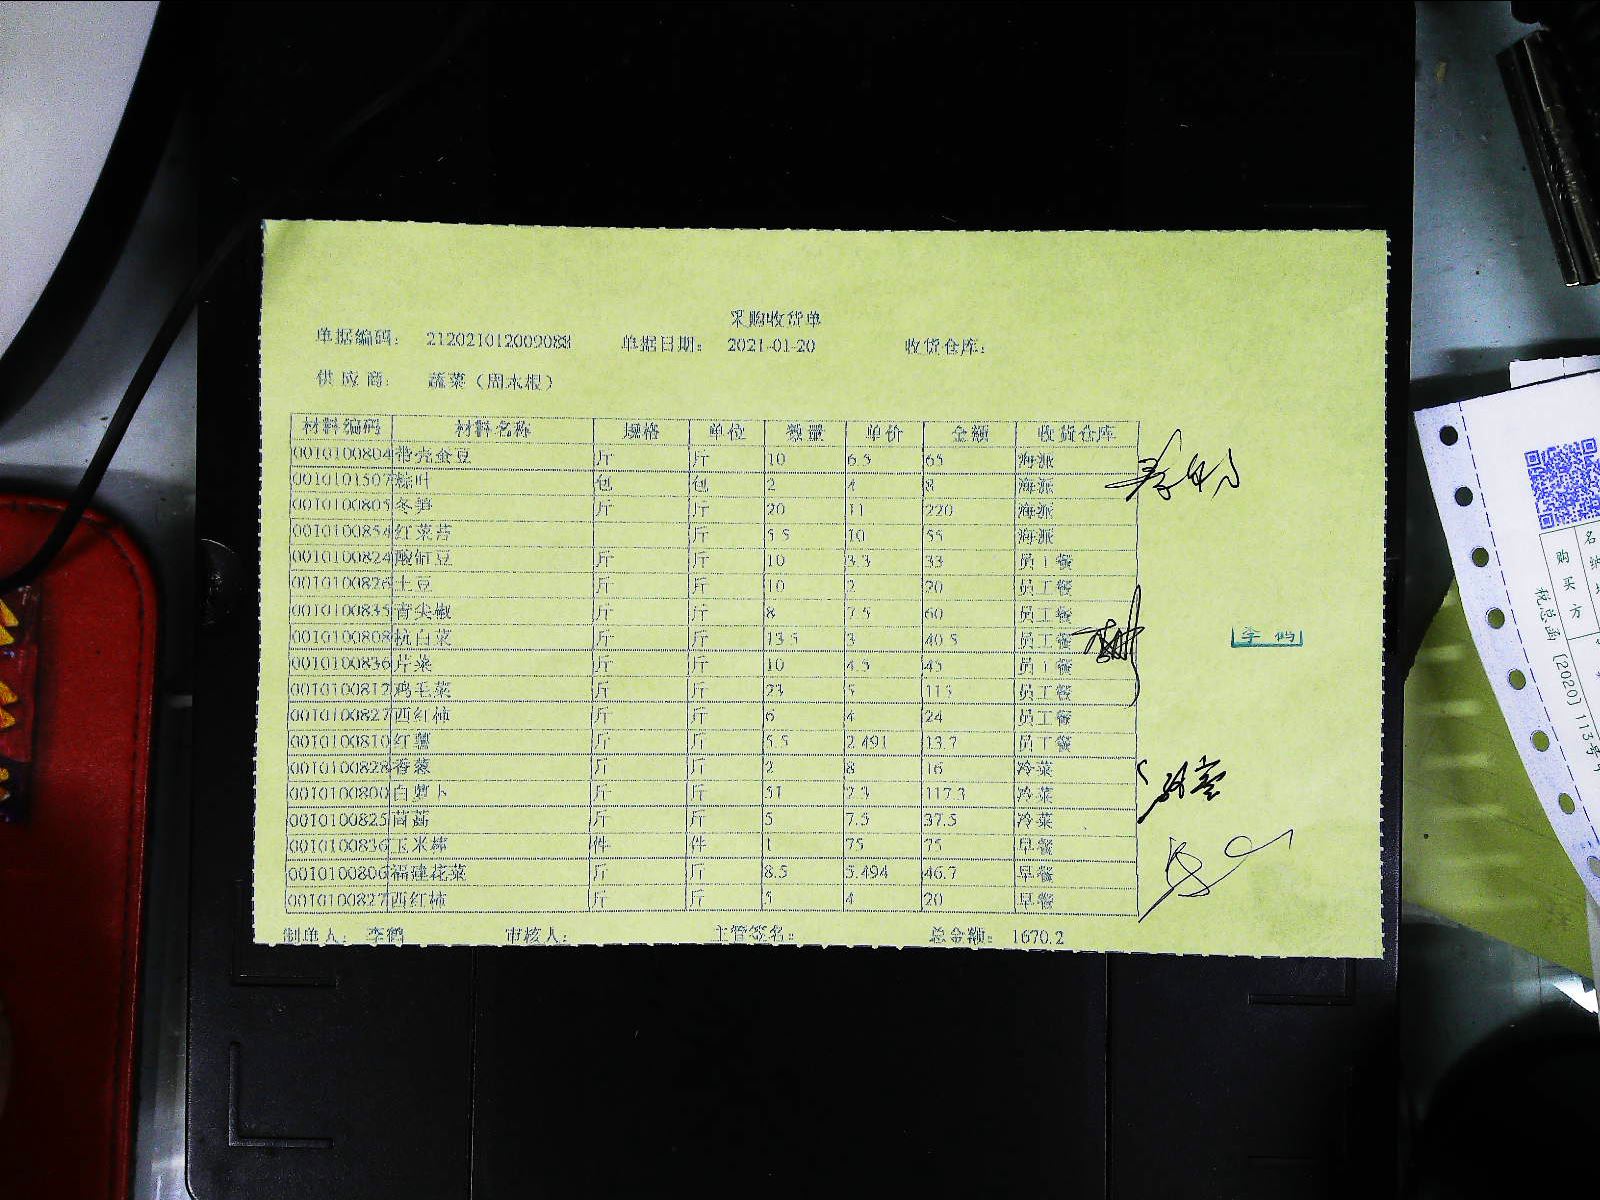 采购收货单
单据编码： 212021012009088 单据日期： 2021-01-20 收货仓库：
供 应 商： 蔬菜（周木根）
材料编码 材料名称 规格 单位 数量 单价 金额 收货仓库
0010100804 带壳蚕豆 斤 斤 10 6.5 65 海派
0010101507 粽叶 包 包 2 4 8 海派
0010100805 冬笋 斤 斤 20 11 220 海派
0010100854 红菜苔 斤 5.5 10 55 海派
0010100824 酸缸豆 斤 斤 10 3.3 33 员工餐
0010100826 土豆 斤 斤 10 2 20 员工餐
0010100835 青尖椒 斤 斤 8 7.5 60 员工餐
0010100808 杭白菜 斤 斤 13.5 3 40.5 员工餐
0010100836 芹菜 斤 斤 10 4.5 45 员工餐
0010100812 鸡毛菜 斤 斤 23 5 115 员工餐
0010100827 西红柿 斤 斤 6 4 24 员工餐
0010100810 红薯 斤 斤 5.5 2.491 13.7 员工餐
0010100828 香菜 斤 斤 2 8 16 冷菜
0010100800 白萝卜 斤 斤 51 2.3 117.3 冷菜
0010100825 莴苣 斤 斤 5 7.5 37.5 冷菜
0010100836 玉米棒 件 件 1 75 75 早餐
0010100806 福建花菜 斤 斤 8.5 5.494 46.7 早餐
0010100827 西红柿 斤 斤 5 4 20 早餐
制单人： 李鹤 审核人： 主管签名： 总金额： 1670.2
李鹤
购买方
税总函〔2020〕113号